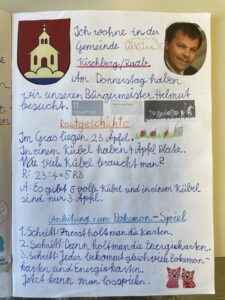 Ich wohne in der
Gemeinde
Kirchberg/Raab.
Am Donnerstag haben
wir unseren Bürgermeister Helmut
besucht.
Restgeschichte
Im Gras liegen 23 Äpfel.
In einem Kübel haben 4 Äpfel Platz.
Wie viele Kübel braucht man?
R: 23:4=5R3
A: Es gibt 5 volle Kübel und in einem Kübel
sind nur 3 Äpfel.
Anleitung zum Pokemon-Spiel
1. Schritt: Zuerst holt man die Karten.
2. Schritt: Dann holt man die Energiekarten.
3. Schritt: Jeder bekommt gleich viele Pokemon-
karten und Energiekarten.
Jetzt kann man losspielen.